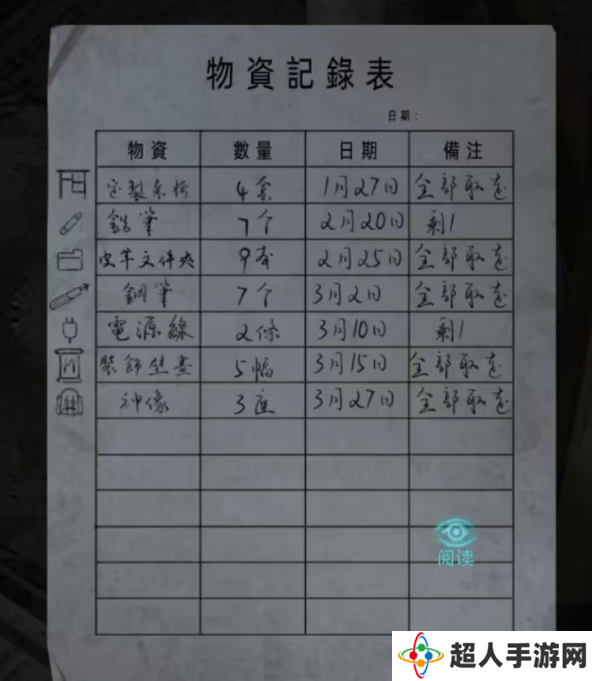 物資記錄表
日期：
物資 數量 日期 備注
定製桌椅 4套 1月27日 全部取走
鉛筆 7个 2月20日 剩1
皮革文件夾 9本 2月25日 全部取走
鋼筆 7个 3月2日 全部取走
電源線 2條 3月10日 剩1
裝飾壁畫 5幅 3月15日 全部取走
神像 3座 3月27日 全部取走
阅读
超人手游网